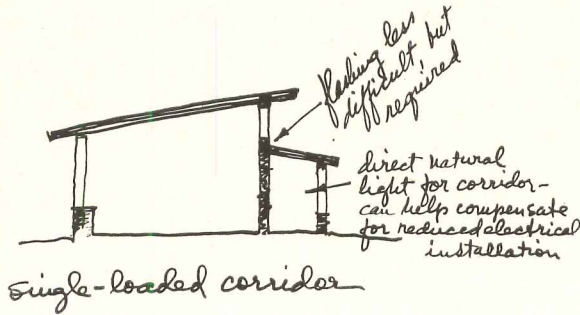 flashing less
difficult but
required
direct natural
light for corridor-
can help compensate
for reduced electrical
installation
single-loaded corridor